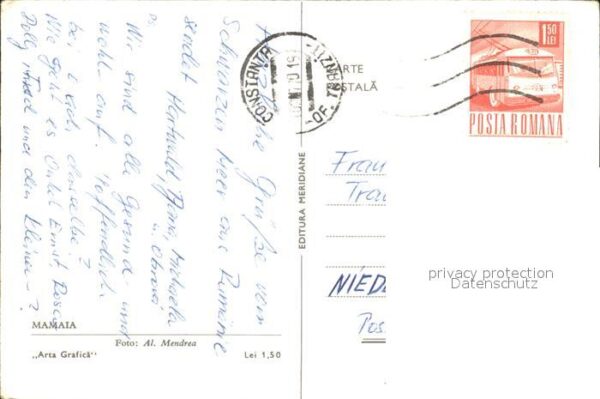 Herzliche Grüße vom
Schwarzen Meer aus Rumänien
sendet Hartwald, Anna, Michaela
u.
Wir sind alle gesund und
wohl auf. Hoffendlich
bei Euch dasselbe?
Wie geht es Onkel Ernst, Rosey,
Dolly, Fried und den Kleinen - ?
MAMAIA
Foto: Al. Mendrea
„Arta Grafică" Lei 1,50
EDITURA MERIDIANE
CONSTANȚA
TRANZIT
OF.
CARTE
POSTALĂ
1,50
LEI
POSTA ROMANA
Frau
Trau
NIED
Pos
privacy protection
Datenschutz